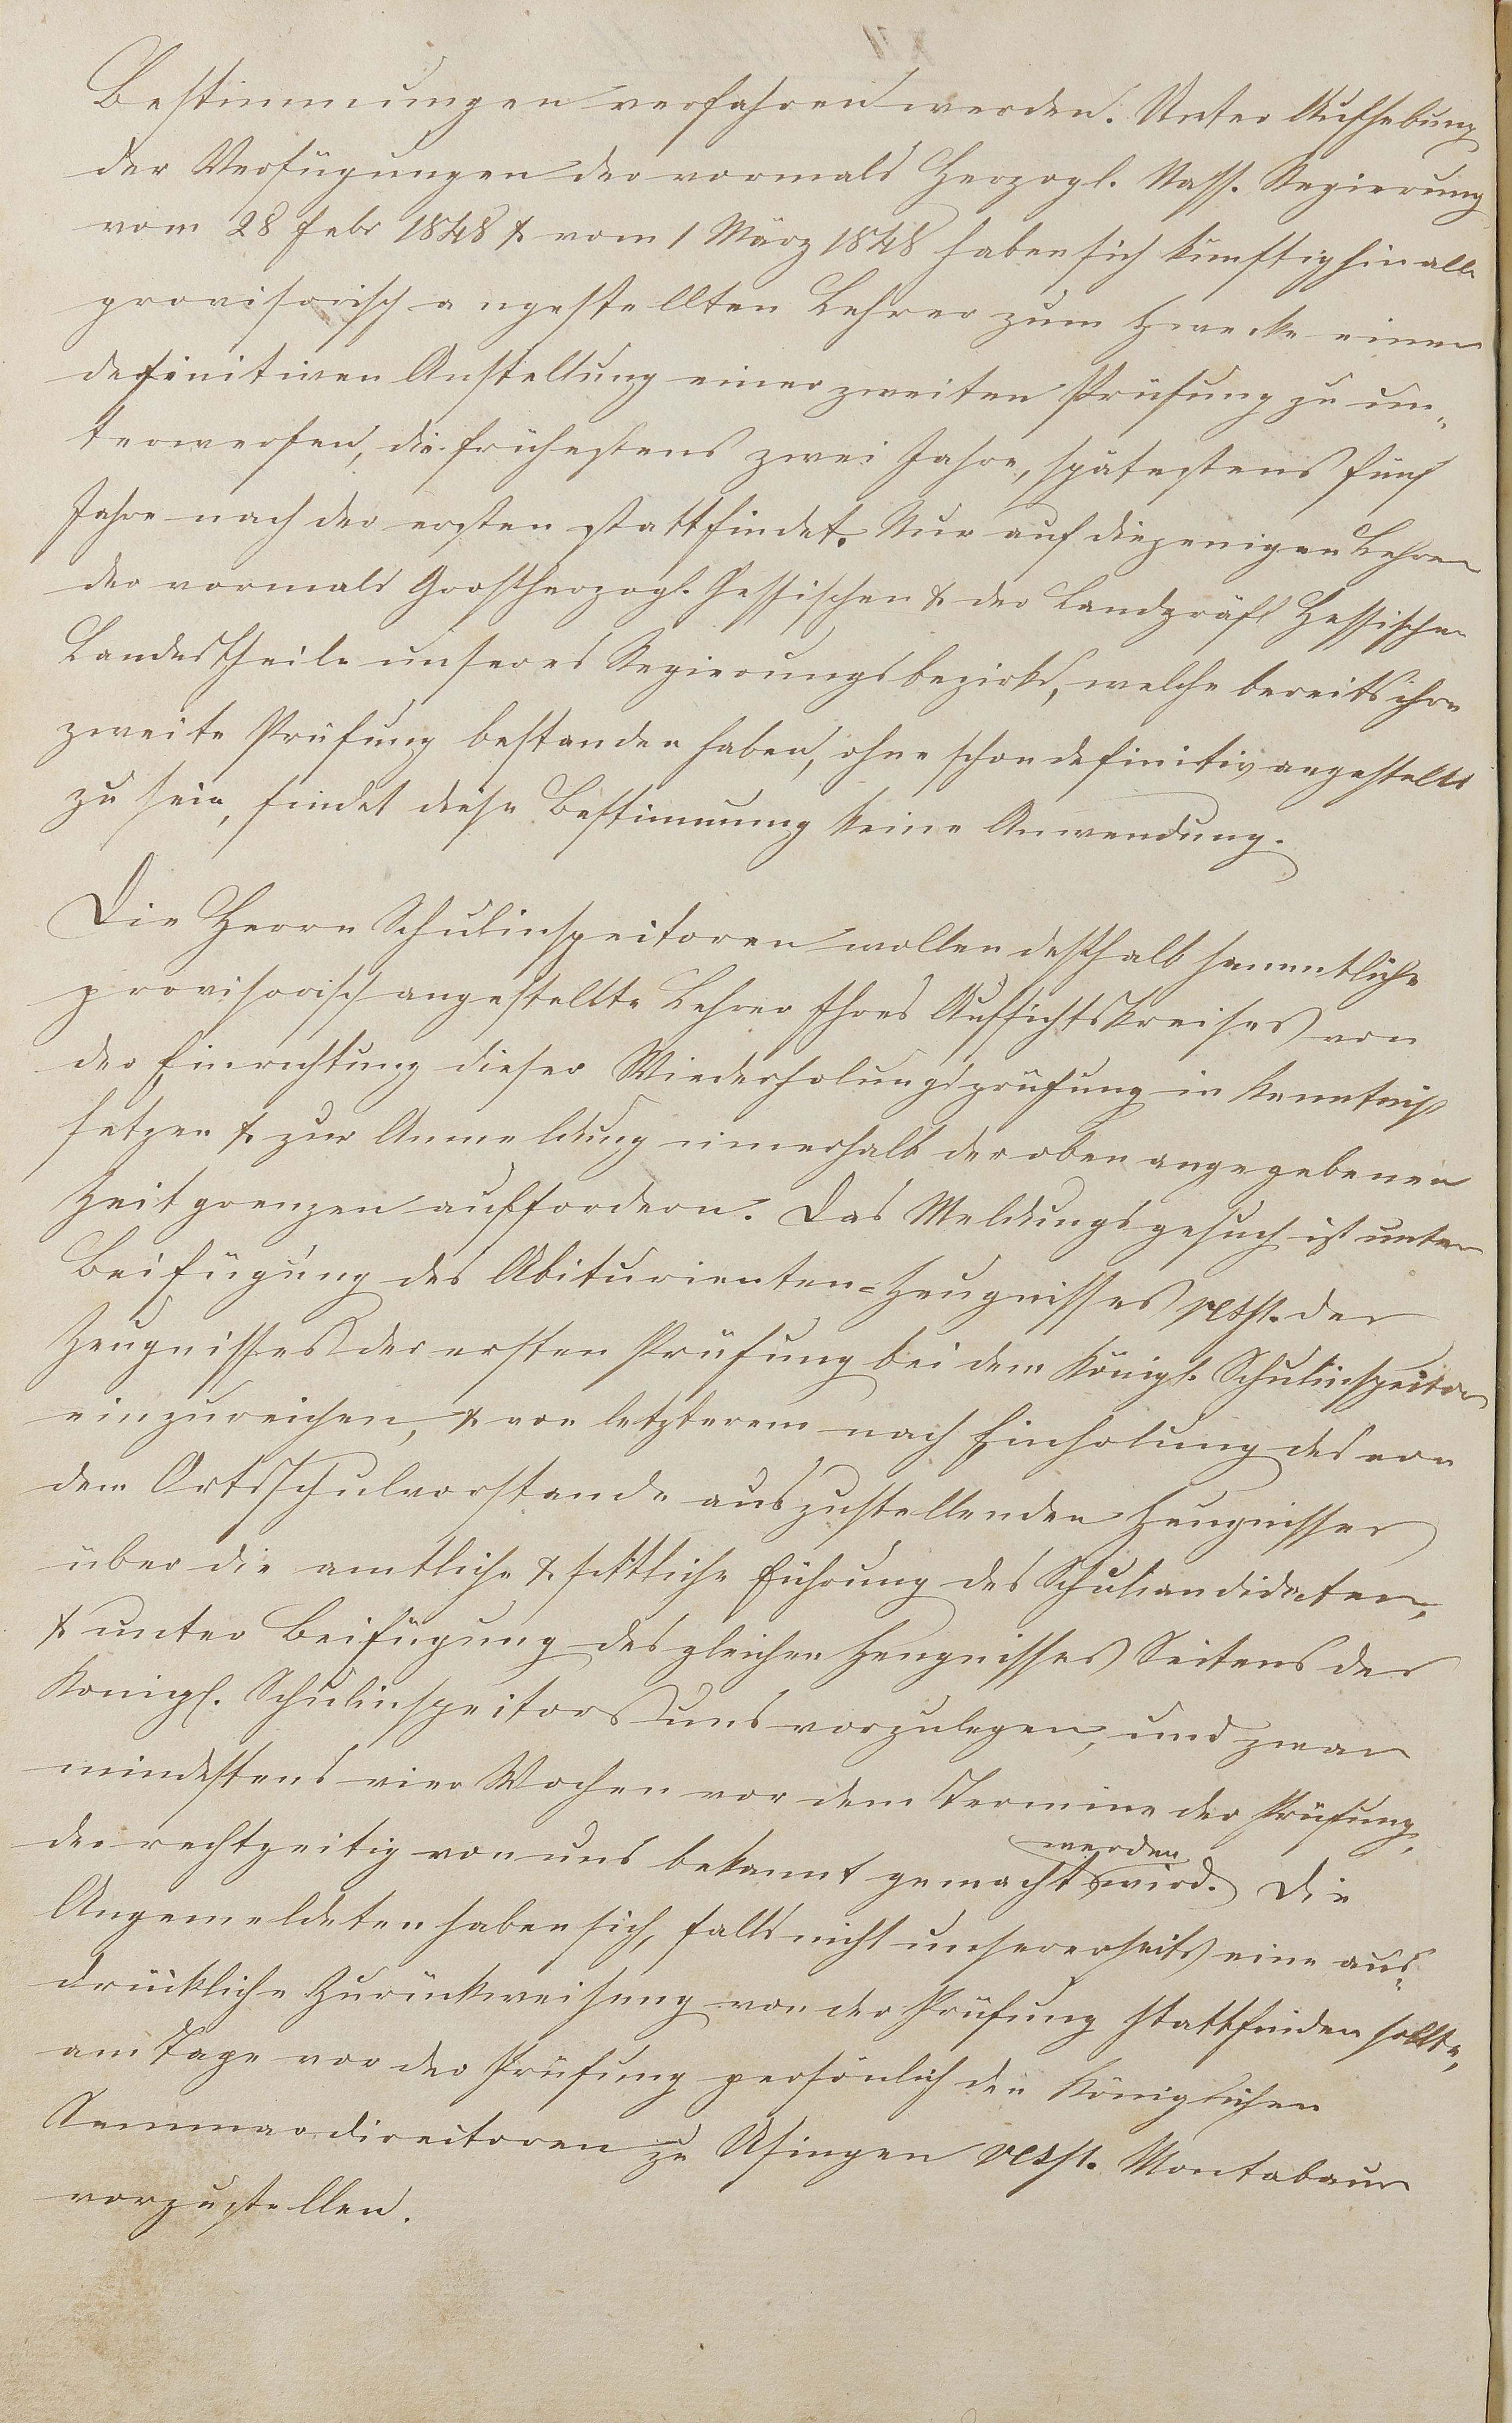 Bestimmungen verfahren werden. Unter Aufhebung
der Verfügungen der vormals Herzogl. Nass. Regierung
vom 28 Febr 1848 & vom 1 März 1848 haben sich künftighin alle
provisorisch angestellten Lehrer zum Zwecke einer
definitiven Anstellung einer zweiten Prüfung zu un„
terwerfen, die frühestens zwei Jahre, spätestens fünf
Jahre nach der ersten stattfindet. Nur auf diejenigen Lehrer
der vormals Grosherzogl. Hessischen & der Landgräfl Hessischen
Landestheile unseres Regierungsbezirks, welche bereits ihre
zweite Prüfung bestanden haben, ohne schon definitiv angestellt
zu sein, findet diese Bestimmung keine Anwendung.
Die Herrn Schulinspectoren wollen deshalb sammtliche
provisorisch angestellte Lehrer Ihres Aufsichtskreises von
der Einrichtung dieser Wiederholungsprüfung in Kenntniß
setzen & zur Anmeldung innerhalb der oben angegebenen
Zeitgrenzen auffordern. Das Meldungsgesuch ist unter
Beifügung des Abiturienten=Zeugnisses resp. des
Zeugnisses der ersten Prüfung bei dem Königl. Schulinspector
einzureichen, & von letzterem nach Einholung des von
dem Ortsschulvorstande auszustellenden Zeugnisses
über die amtliche & sittliche Führung des Schulcandidaten,
& unter Beifügung des gleichen Zeugnisses Seitens des
Königl. Schulinspectors uns vorzulegen, und zwar
mindestens vier Wochen vor dem Termine der Prüfung,
der rechtzeitig von uns bekannt gemacht werden wird. Die
Angemeldeten haben sich, falls nicht unsererseits eine aus„
drückliche Zurückweisung von der Prüfung stattfinden sollte,
am Tage vor der Prüfung persönlich den Königlichen
Seminardirectoren zu Usingen resp. Montabaur
vorzustellen.